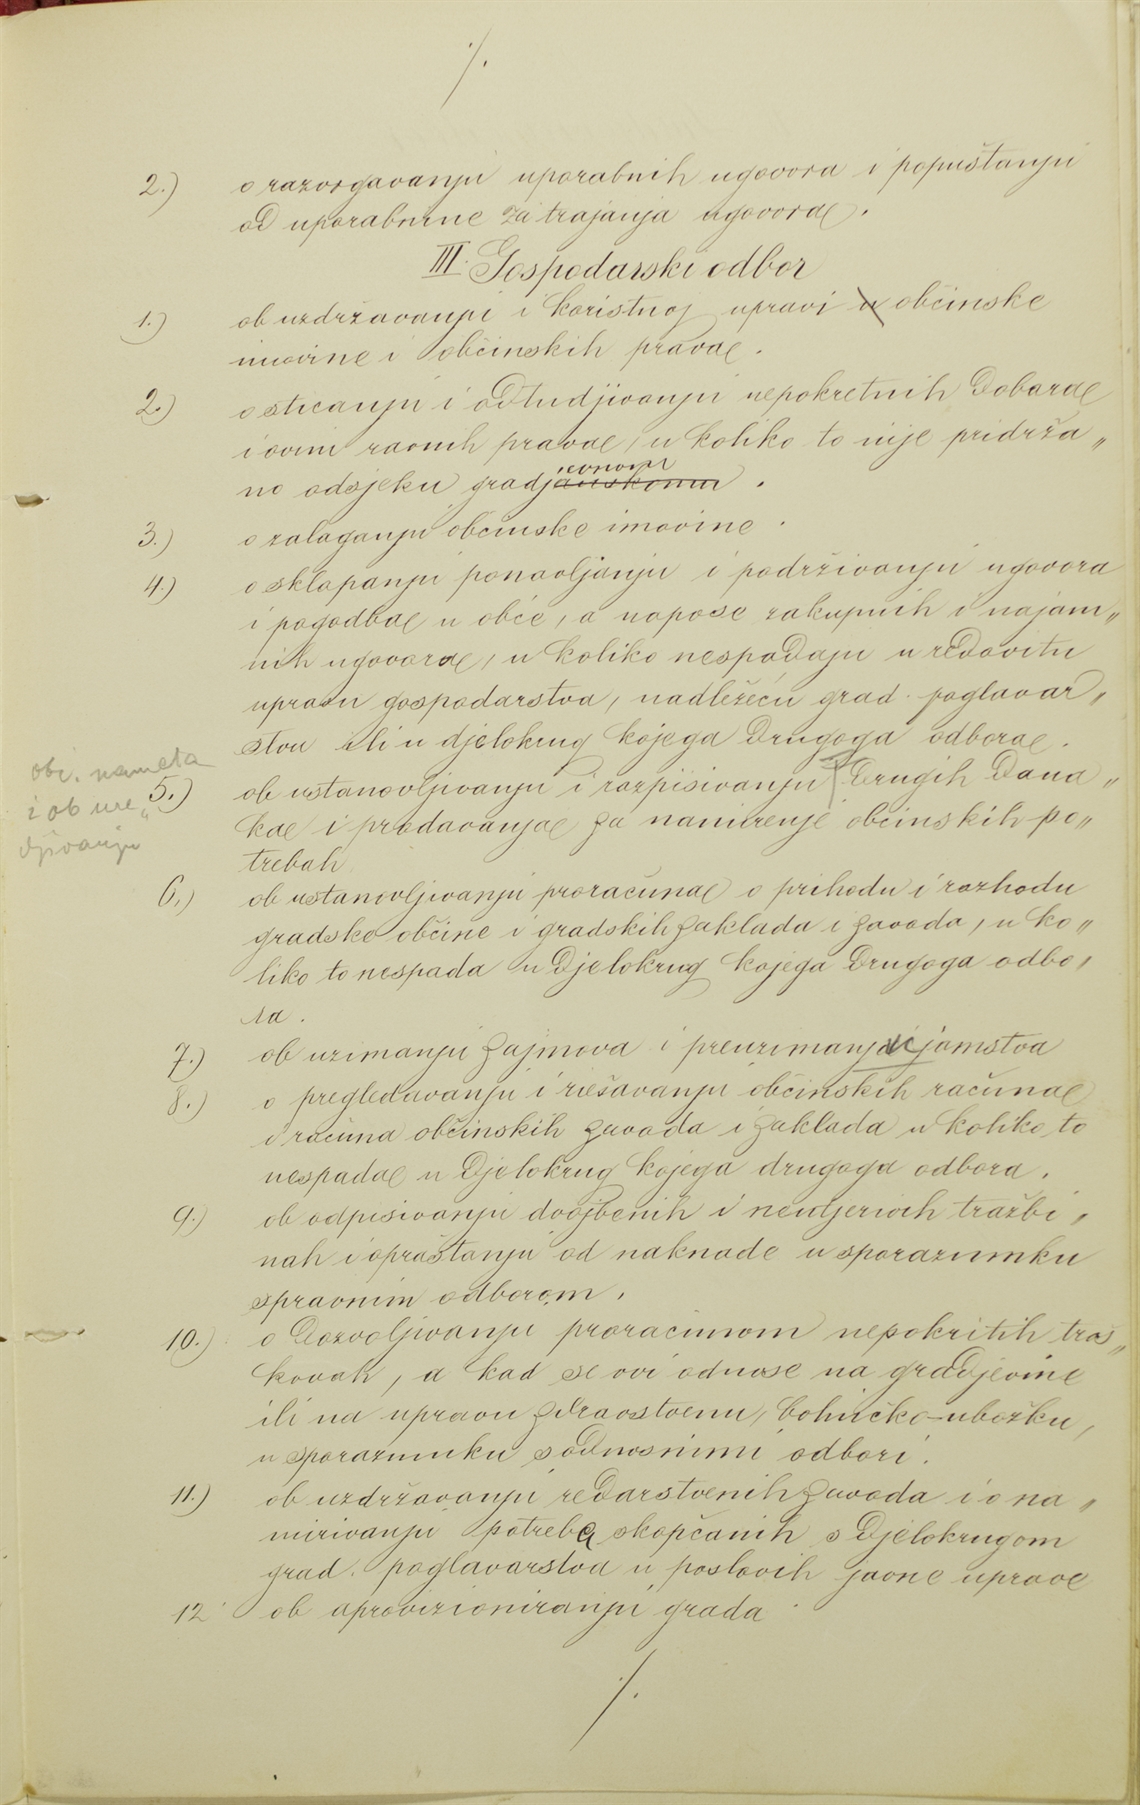 ./.
2.) o razvrgavanju uporabnih ugovora i popuštanju
od uporabnine za trajanja ugovora.
III. Gospodarski odbor
1.) ob uzdržavanju i koristnoj upravi u občinske
imovine i občinskih prava.
2.) o sticanju i odtudjivanju nepokretnih dobara
i ovim ravnih prava, u koliko to nije pridrža„
no odsjeku gradjanskomu.
evnomu
3.) o zalaganju občinske imovine.
4.) o sklapanju ponavljanju i podrživanju ugovora
i pogodba u obće, a napose zakupnih i najam„
nih ugovora, u koliko nespadaju u redovitu
upravu gospodarstva, nadležeću grad. poglavar„
stvu ili u djelokrug kojega drugoga odbora.
obć. nameta
i ob ure„
djivanju
5.) ob ustanovljivanju i razpisivanju drugih dana„
ka i prodavanja za namirenje občinskih po„
trebah
6.) ob ustanovljivanju proračuna o prihodu i razhodu
gradske občine i gradskih zaklada i zavoda, u ko„
liko to nespada u djelokrug kojega drugoga odbo„
ra.
7.) ob uzimanju zajmova i preuzimanju jamstva
8.) o pregledavanju i riešavanju občinskih računa
i računa občinskih zavoda i zaklada u koliko to
nespada u djelokrug kojega drugoga odbora.
9.) ob odpisivanju dvojbenih i neutjerivih tražbi„
nah i opraštanju od naknade u sporazumku
s pravnim odborom.
10.) o dozvoljivanju proračunom nepokritih troš„
kovah, a kad se ovi odnose na gradjevine
ili na upravu zdravstvenu, bolničko-ubožku,
u sporazumku s odnosnimi odbori.
11.) ob uzdržavanju redarstvenih zavoda i o na„
mirivanju potreba skopčanih s djelokrugom
grad. poglavarstva u poslovih javne uprave
12 ob aprovizioniranju grada
./.